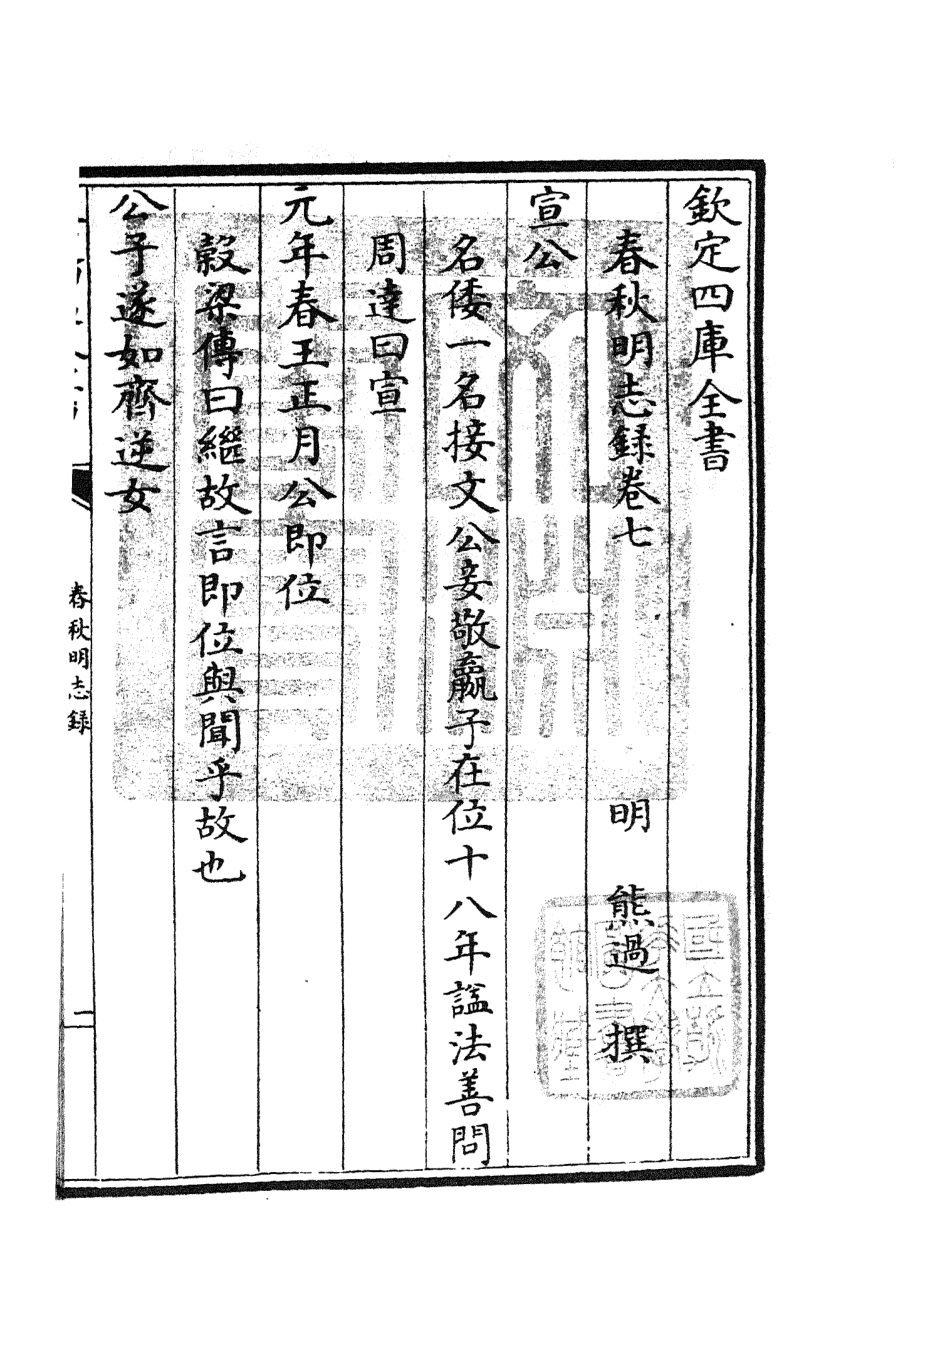 欽定四庫全書
春秋明志録卷七
明 熊過 撰
宣公
名倭一名接文公妾敬嬴子在位十八年諡法善問
周達曰宣
元年春王正月公即位
穀梁傳曰繼故言即位與聞乎故也
公子遂如齊逆女
春秋明志録